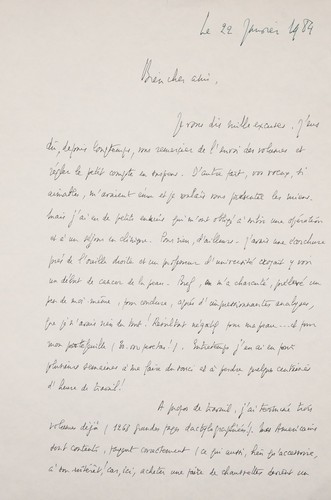 Le 22 Janvier 1984
Bien cher ami,
Je vous dis mille excuses. J'aurais
dû, depuis longtemps, vous remercier de l'envoi des volumes et
régler le petit compte en suspens. D'autre part, vos voeux, si
aimables, m'avaient ému et je voulais vous présenter les miens.
Mais j'ai eu de petits ennuis qui m'ont obligé à subir une opération
et à un séjour en clinique. Pour rien, d'ailleurs. J'avais une écorchure
près de l'oreille droite et un professeur d'université croyait y voir
un début de cancer de la peau. Bref, on m'a charcuté, prélevé un
peu de moi même, pour conclure, après d'impressionnantes analyses,
que je n'avais rien du tout! Résultat négatif pour ma peau... et pour
mon portefeuille
Entretemps j'en ai eu pour
plusieurs semaines à me faire du souci et à perdre quelque centaines
d'heures de travail!
A propos de travail, j'ai terminé trois
volumes déjà (1268 grandes pages dactylographiées!). Mes Américains
sont contents, payent correctement (ce qui aussi, bien qu'accessoire,
a son intérêt! car, ici, acheter une paire de chaussettes devient un